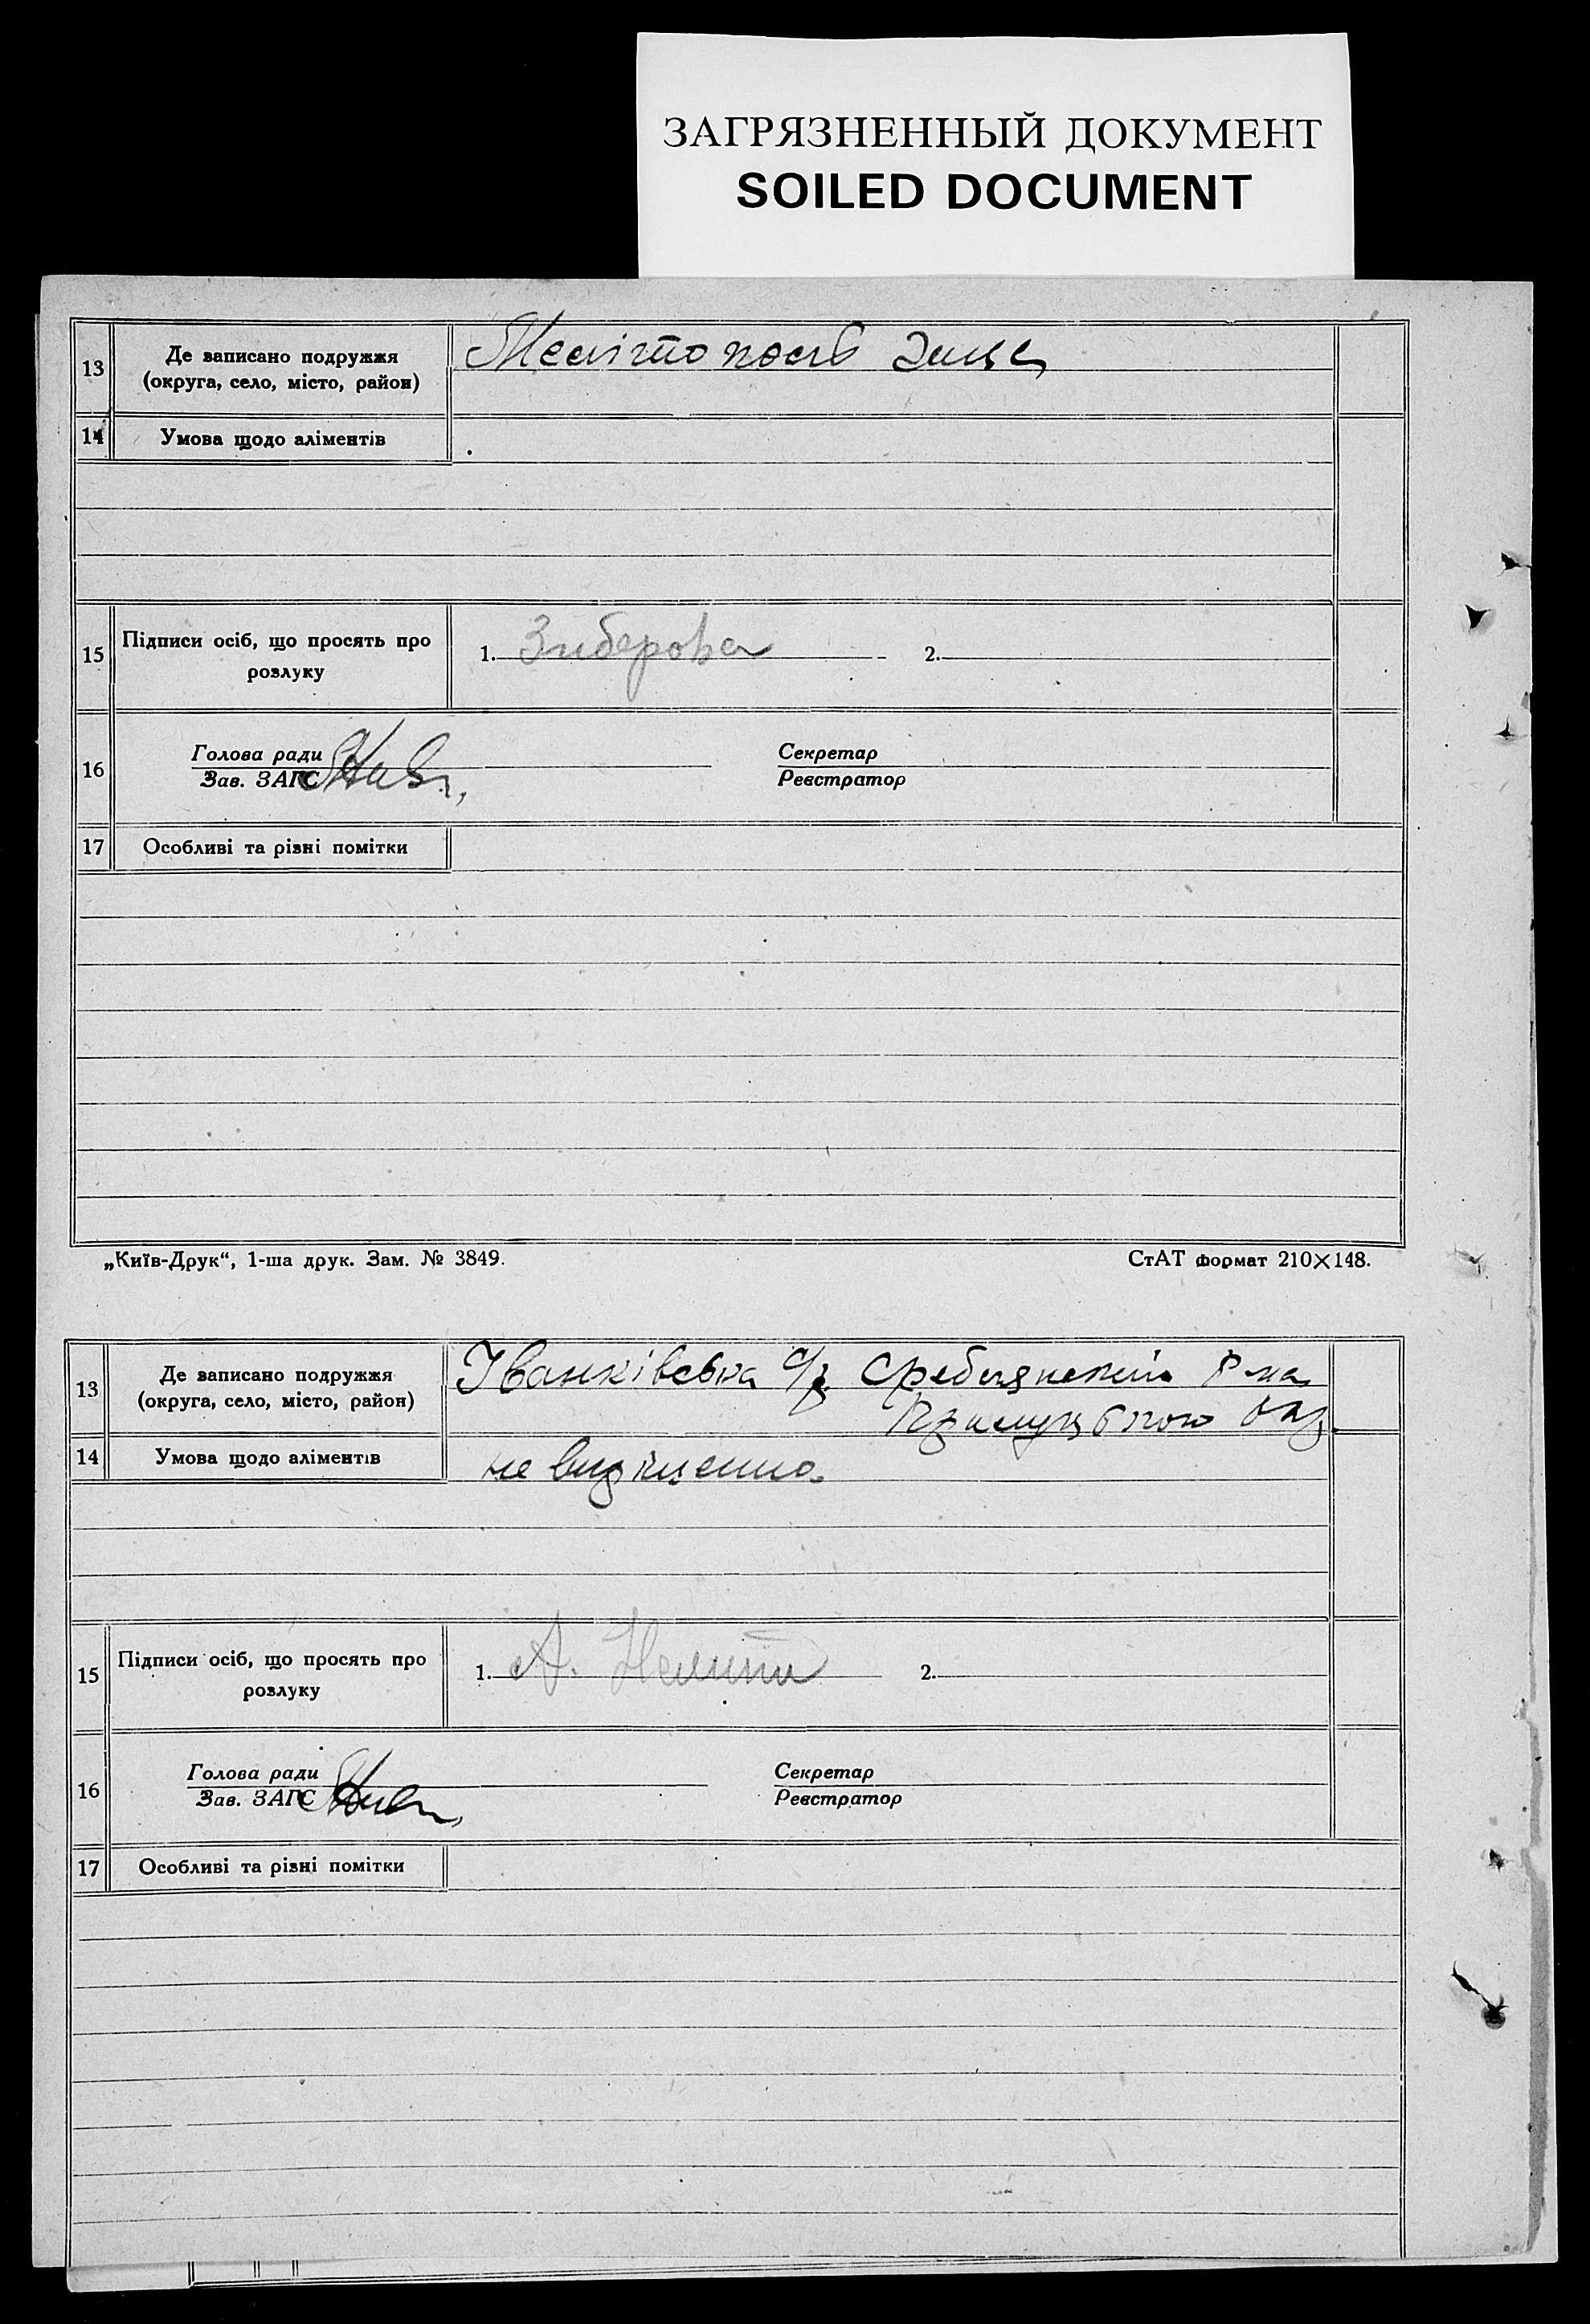 ЗАГРЯЗНЕННЫЙ ДОКУМЕНТ
SOILED DOCUMENT
13
Де записано подружжя
(округа, село, місто, район)
14
Умова щодо аліментів
15
Підписи осіб, що просять про
розлуку
1. Зиберова
2.
16
Голова ради
Зав. ЗАГС
Секретар
Реєстратор
17
Особливі та різні помітки
„Київ-Друк“, 1-ша друк. Зам. № 3849.
СтАТ формат 210×148.
13
Де записано подружжя
(округа, село, місто, район)
Іванківська с/р.
14
Умова щодо аліментів
не
15
Підписи осіб, що просять про
розлуку
1. А.
2.
16
Голова ради
Зав. ЗАГС
Секретар
Реєстратор
17
Особливі та різні помітки